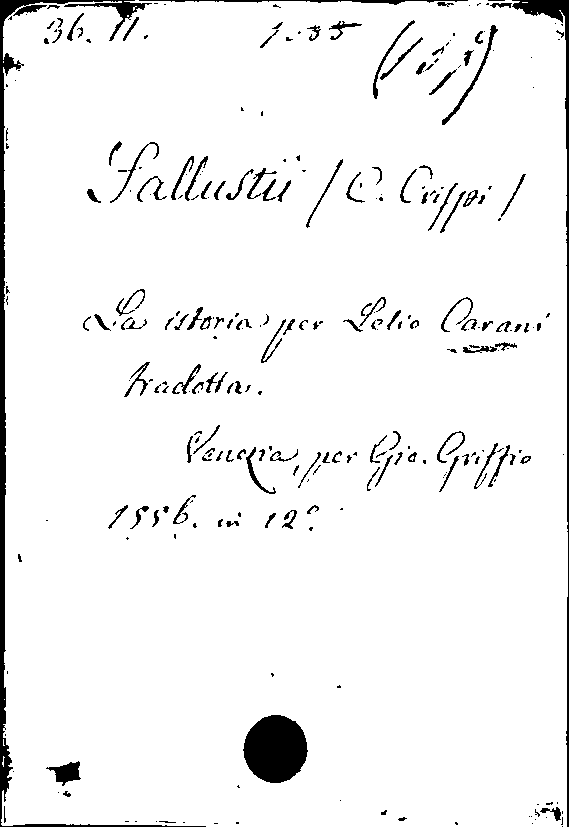 36. 11.
Sallustii / C. Crispi /
La istoria per Lelio Carani
tradotta.
Venezia, per Gio. Griffio
1556. in 12°.